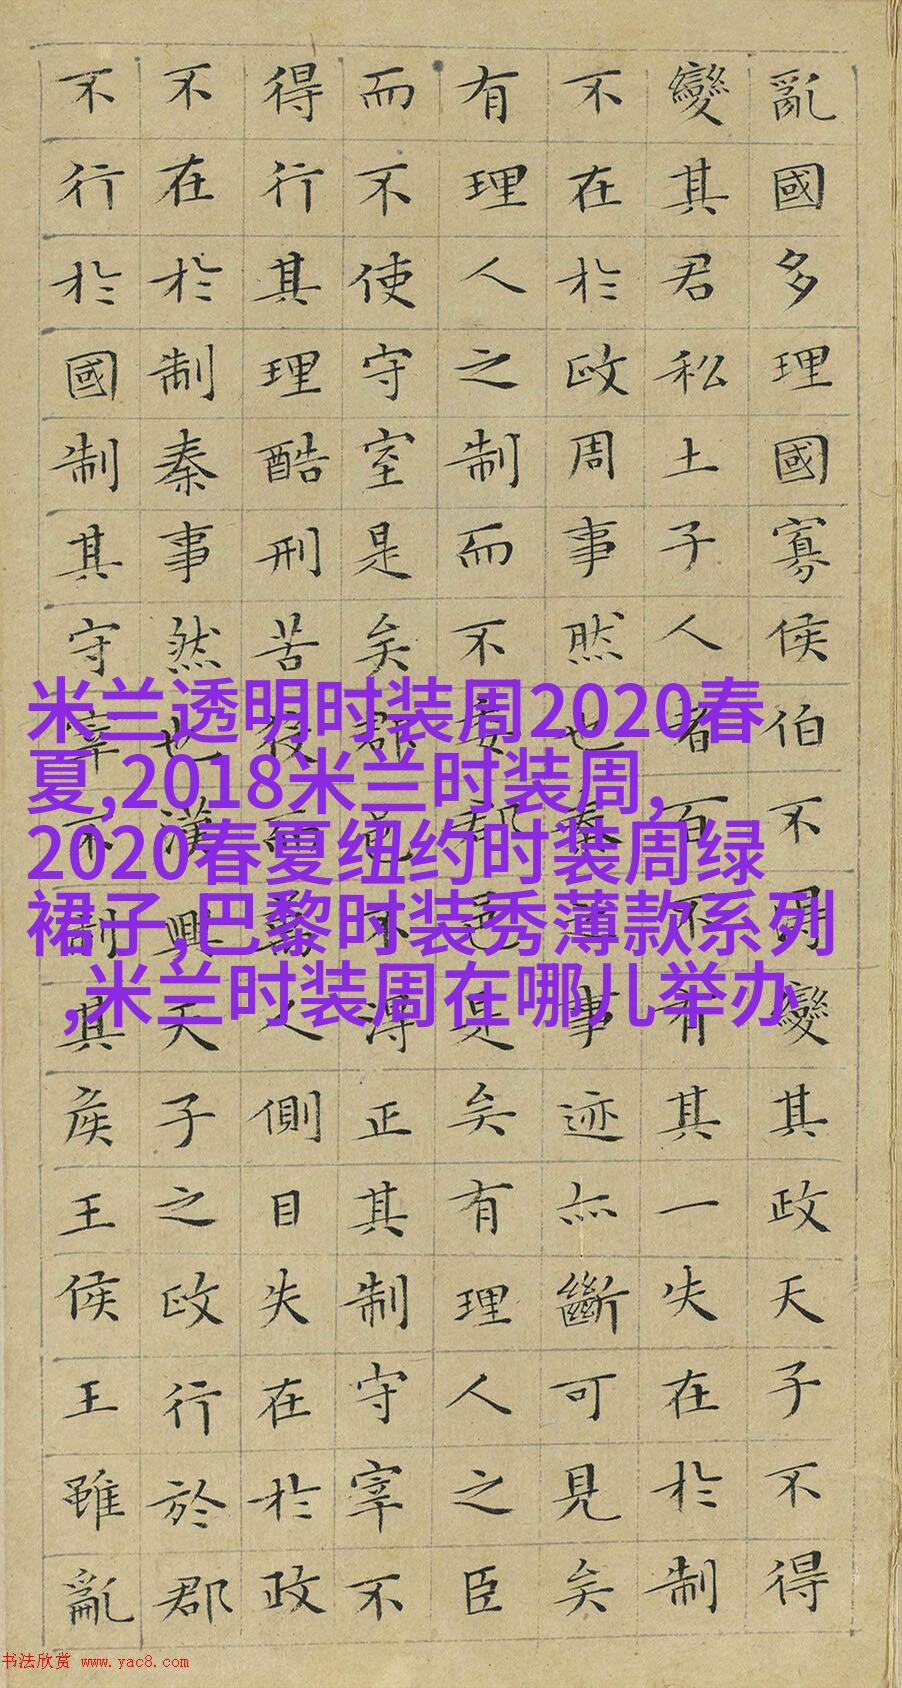 亂國多理國寡侯伯不得變其政天子不得
變其君私土子人者百不有其一失在於制
不在於政周事然也秦之事迹亦斷可見矣
有理人之制而不委郡邑是矣有理人之臣
而不使守宰是矣郡邑不得正其制守宰不
得行其理酷刑苦役而萬人側目失在於政
不在於制秦事然也漢興天子之政行於郡
不行於國制其守宰不制其侯王侯王雖亂
米兰透明时装周2020春
夏,2018米兰时装周,
2020春夏纽约时装周绿
裙子,巴黎时装秀薄款系列
,米兰时装周在哪儿举办
书法欣赏 www.yac8.com